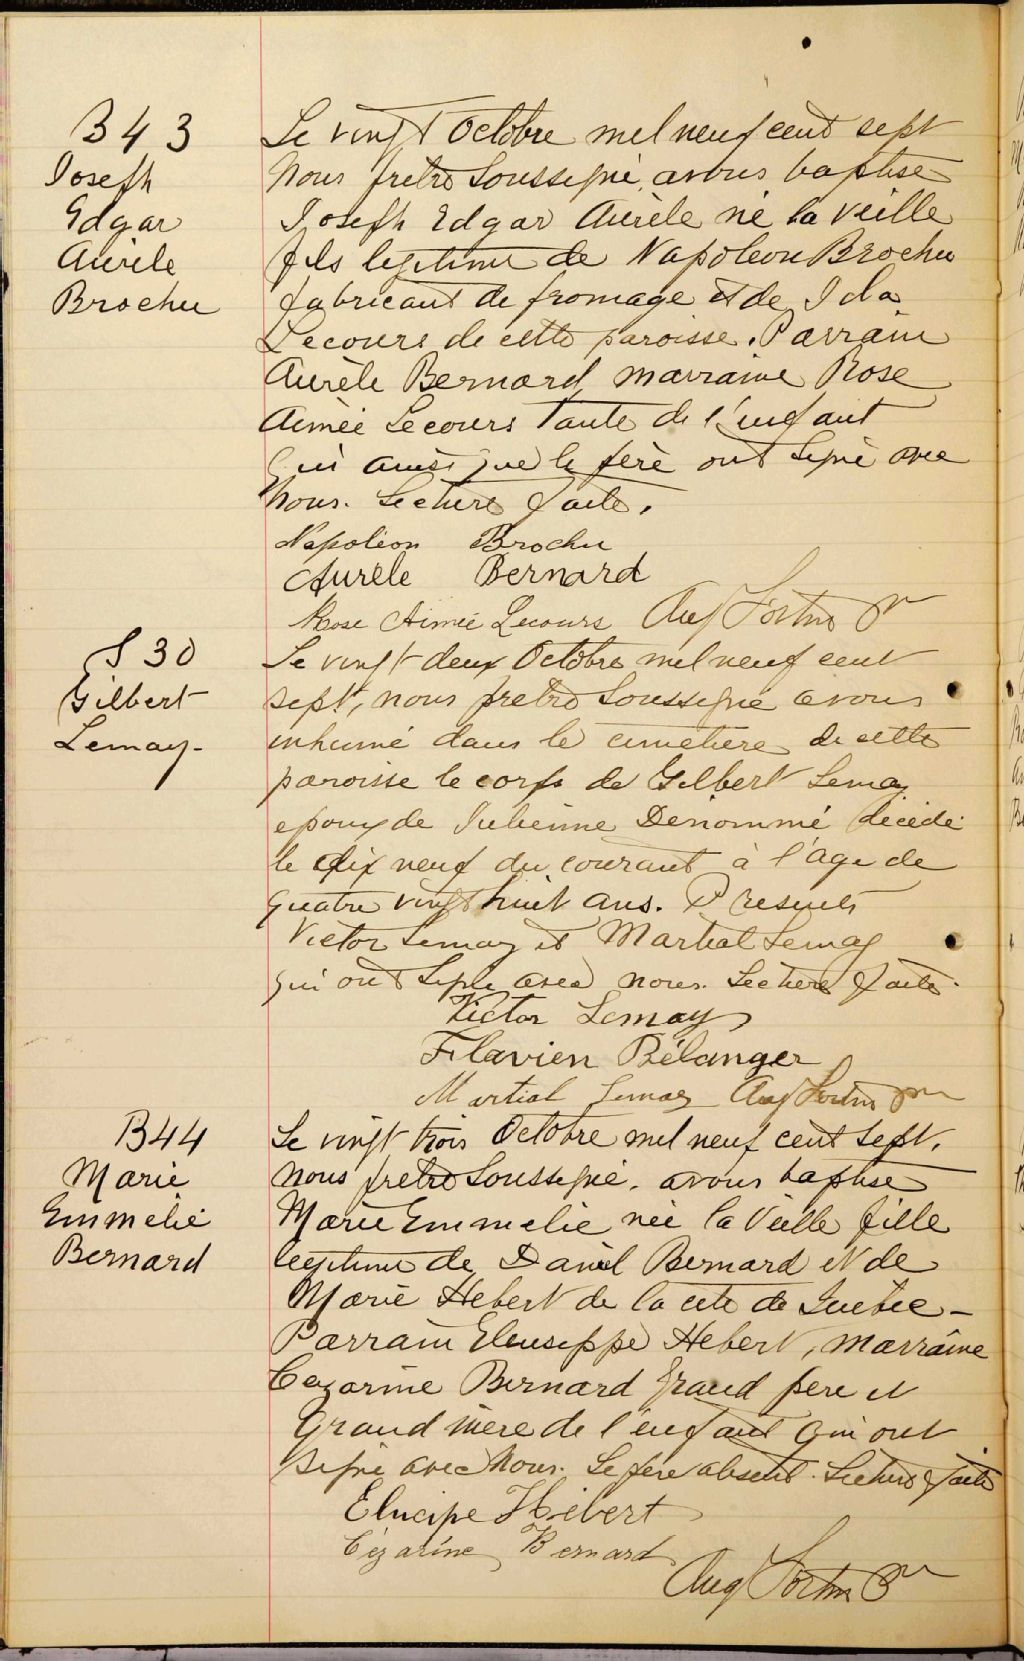 B43
Joseph
Edgar
Aurèle
Brochu
Le vingt Octobre mil neuf cent sept
Nous pretre Soussigné, avons baptisé
Joseph Edgar Aurèle né la veille
fils legitime de Napoleon Brochu
fabricant de fromage et de Ida
Lecours de cette paroisse. Parrain
Aurèle Bernard, marraine Rose
Aimée Lecours tante de l'enfant
qui ainsi que le père ont signé avec
nous. Lecture faite.
Napoléon Brochu
Aurèle Bernard
Rose Aimée Lecours Aug Fortin Ptr
S 30
Gilbert
Lemay-
Le vingt deux Octobre mil neuf cent
sept, nous pretre Soussigné avons
inhumé dans le cimetière de cette
paroisse le corps de Gilbert Lemay
epoux de Julienne Dénommé décédé
le dix neuf du courant à l'age de
quatre vingt huit ans. Presents
Victor Lemay et Martial Lemay
qui ont signé avec nous. Lecture faite.
Victor Lemay
Flavien Bélanger
Martial Lemay Aug Fortin Ptr
B44
Marie
Emmelie
Bernard
Le vingt trois Octobre mil neuf cent sept.
Nous pretre Soussigné, avons baptisé
Marie Emmelie née la Veille fille
legitime de Daniel Bernard et de
Marie Hebert de la cité de Quebec-
Parrain Eleuseppe Hebert, Marraine
Cezarine Bernard grand père et
Grand mère de l'enfant qui ont
signé avec Nous. Le père absent. Lecture faite
Elucipe Hébert
Cézarine Bernard
Aug Fortin Ptr